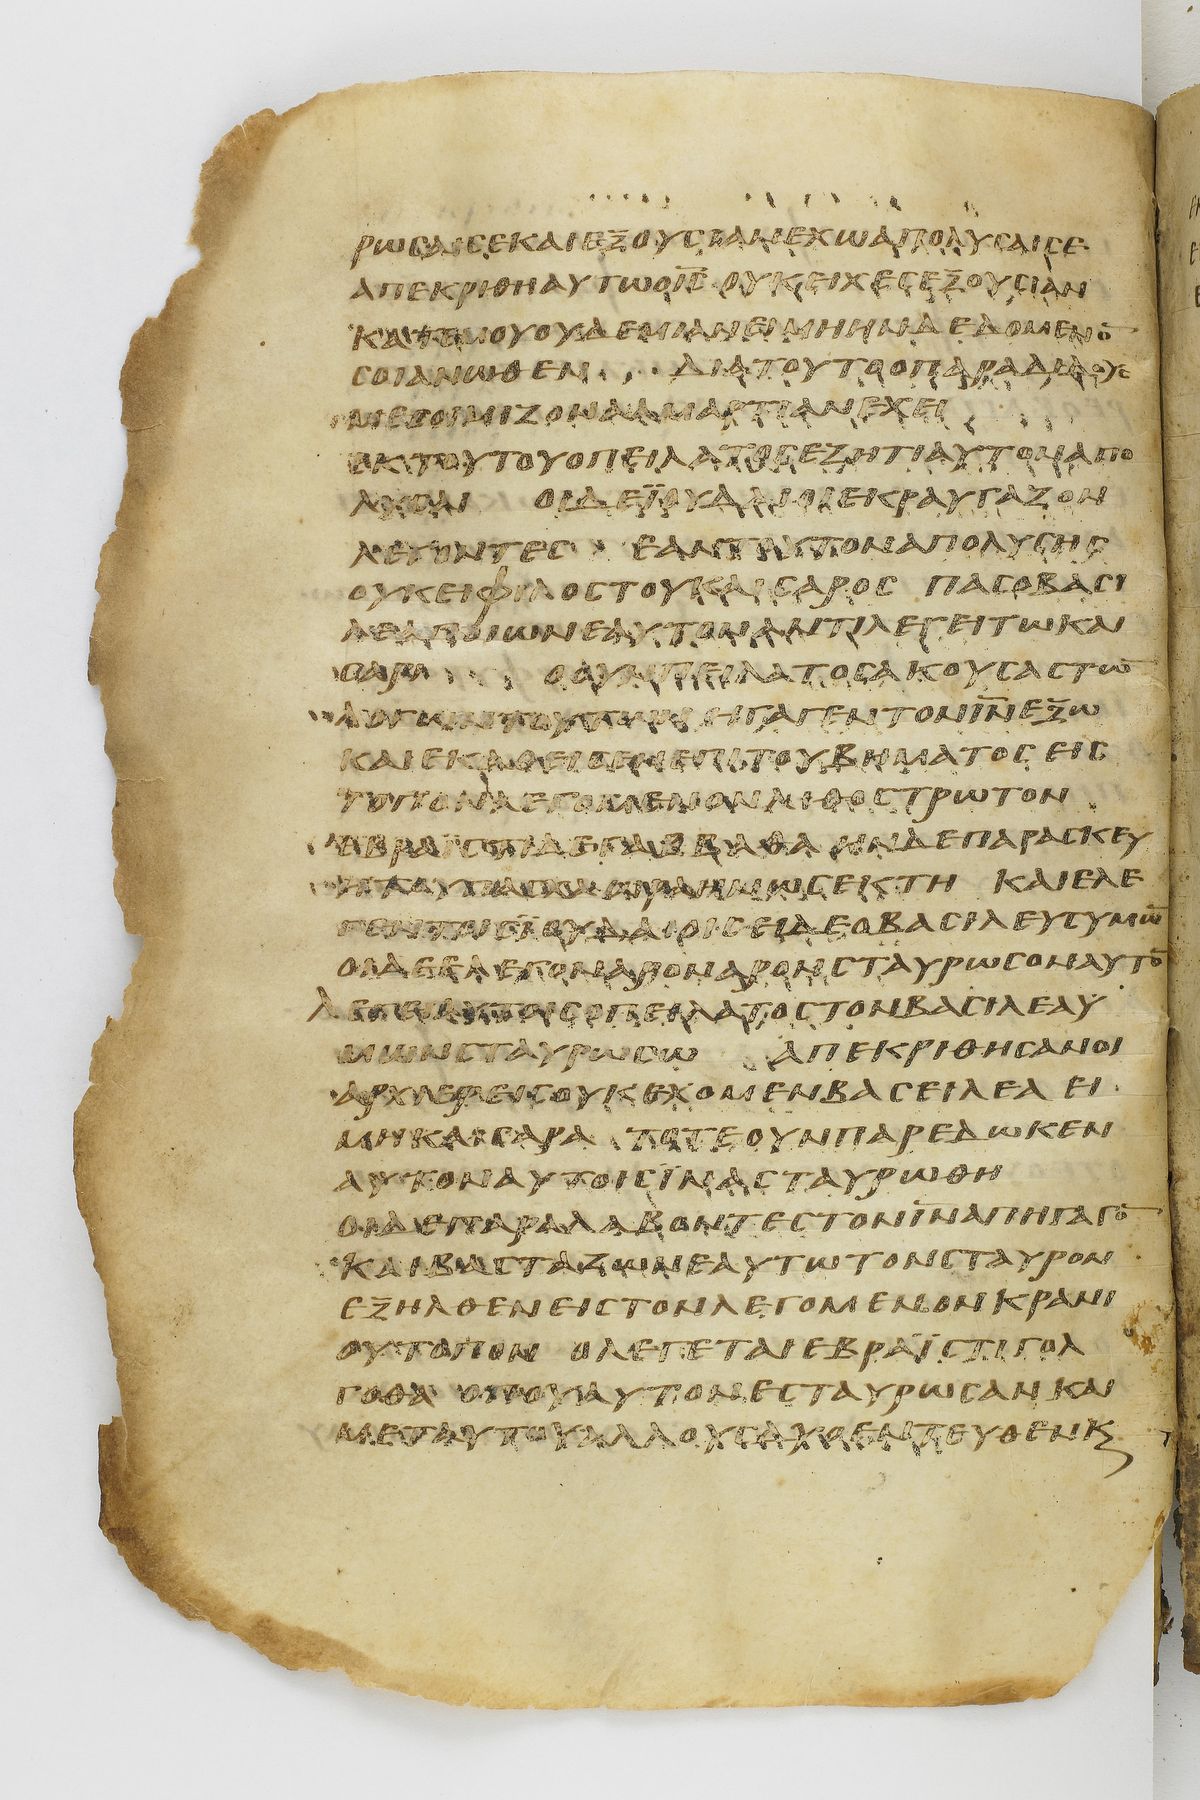 ρωσαισεκαιεξουσιανεχωαπολυσαισε
απεκριθηαυτωοις ουκειχεςεξουσιαν
κατεμουουδεμιανειμηηνδεδομενο
σοιανωθεν διατουτοοπαραδιδους
μεσοιμιζοναμαρτιανεχει
εκτουτουοπειλατοςεζητιαυτοναπο
λυσαι οιδειουδαιοιεκραυγαζον
λεγοντες εαντουτοναπολυσης
ουκειφιλοςτουκαισαρος πασοβασι
λεαποιωνεαυτοναντιλεγειτωκαι
σαρι οουνπειλατοςακουσαςτω
λογωντουτων ηγαγεντονινεξω
καιεκαθεισενεπιτουβηματοςεις
τοπονλεγομενονλιθοστρωτον
εβραιστιδεγαββαθα ηνδεπαρασκευ
ωσεκτη καιλε
γειτοιςιουδαιοιςειδεοβασιλευςυμω
οιδεελεγοναροναρονσταυρωσοναυτο
λεγειαυτοιςοπειλατοςτονβασιλεαυ
μωνσταυρωσω απεκριθησανοι
αρχιερειςουκεχομενβασειλεαει
μηκαισαρα τοτεουνπαρεδωκεν
αυτοναυτοιςιναςταυρωθη
οιδεπαραλαβοντεςτονιναπηγαγο
καιβασταζωνεαυτωτονσταυρον
εξηλθενειςτονλεγομενονκρανι
ουτοπον ολεγεταιεβραιστιγολ
γοθα οπουαυτονεσταυρωσανκαι
μεταυτουαλλουςδυοεντευθενκ